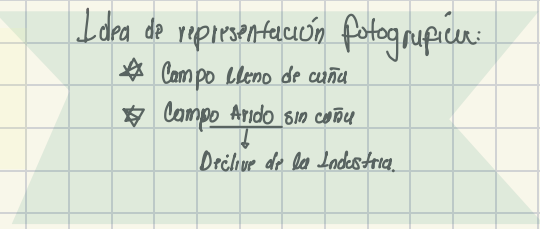 Idea de representación fotografica:
Campo lleno de caña
Campo Arido sin caña
Declive de la Industria.